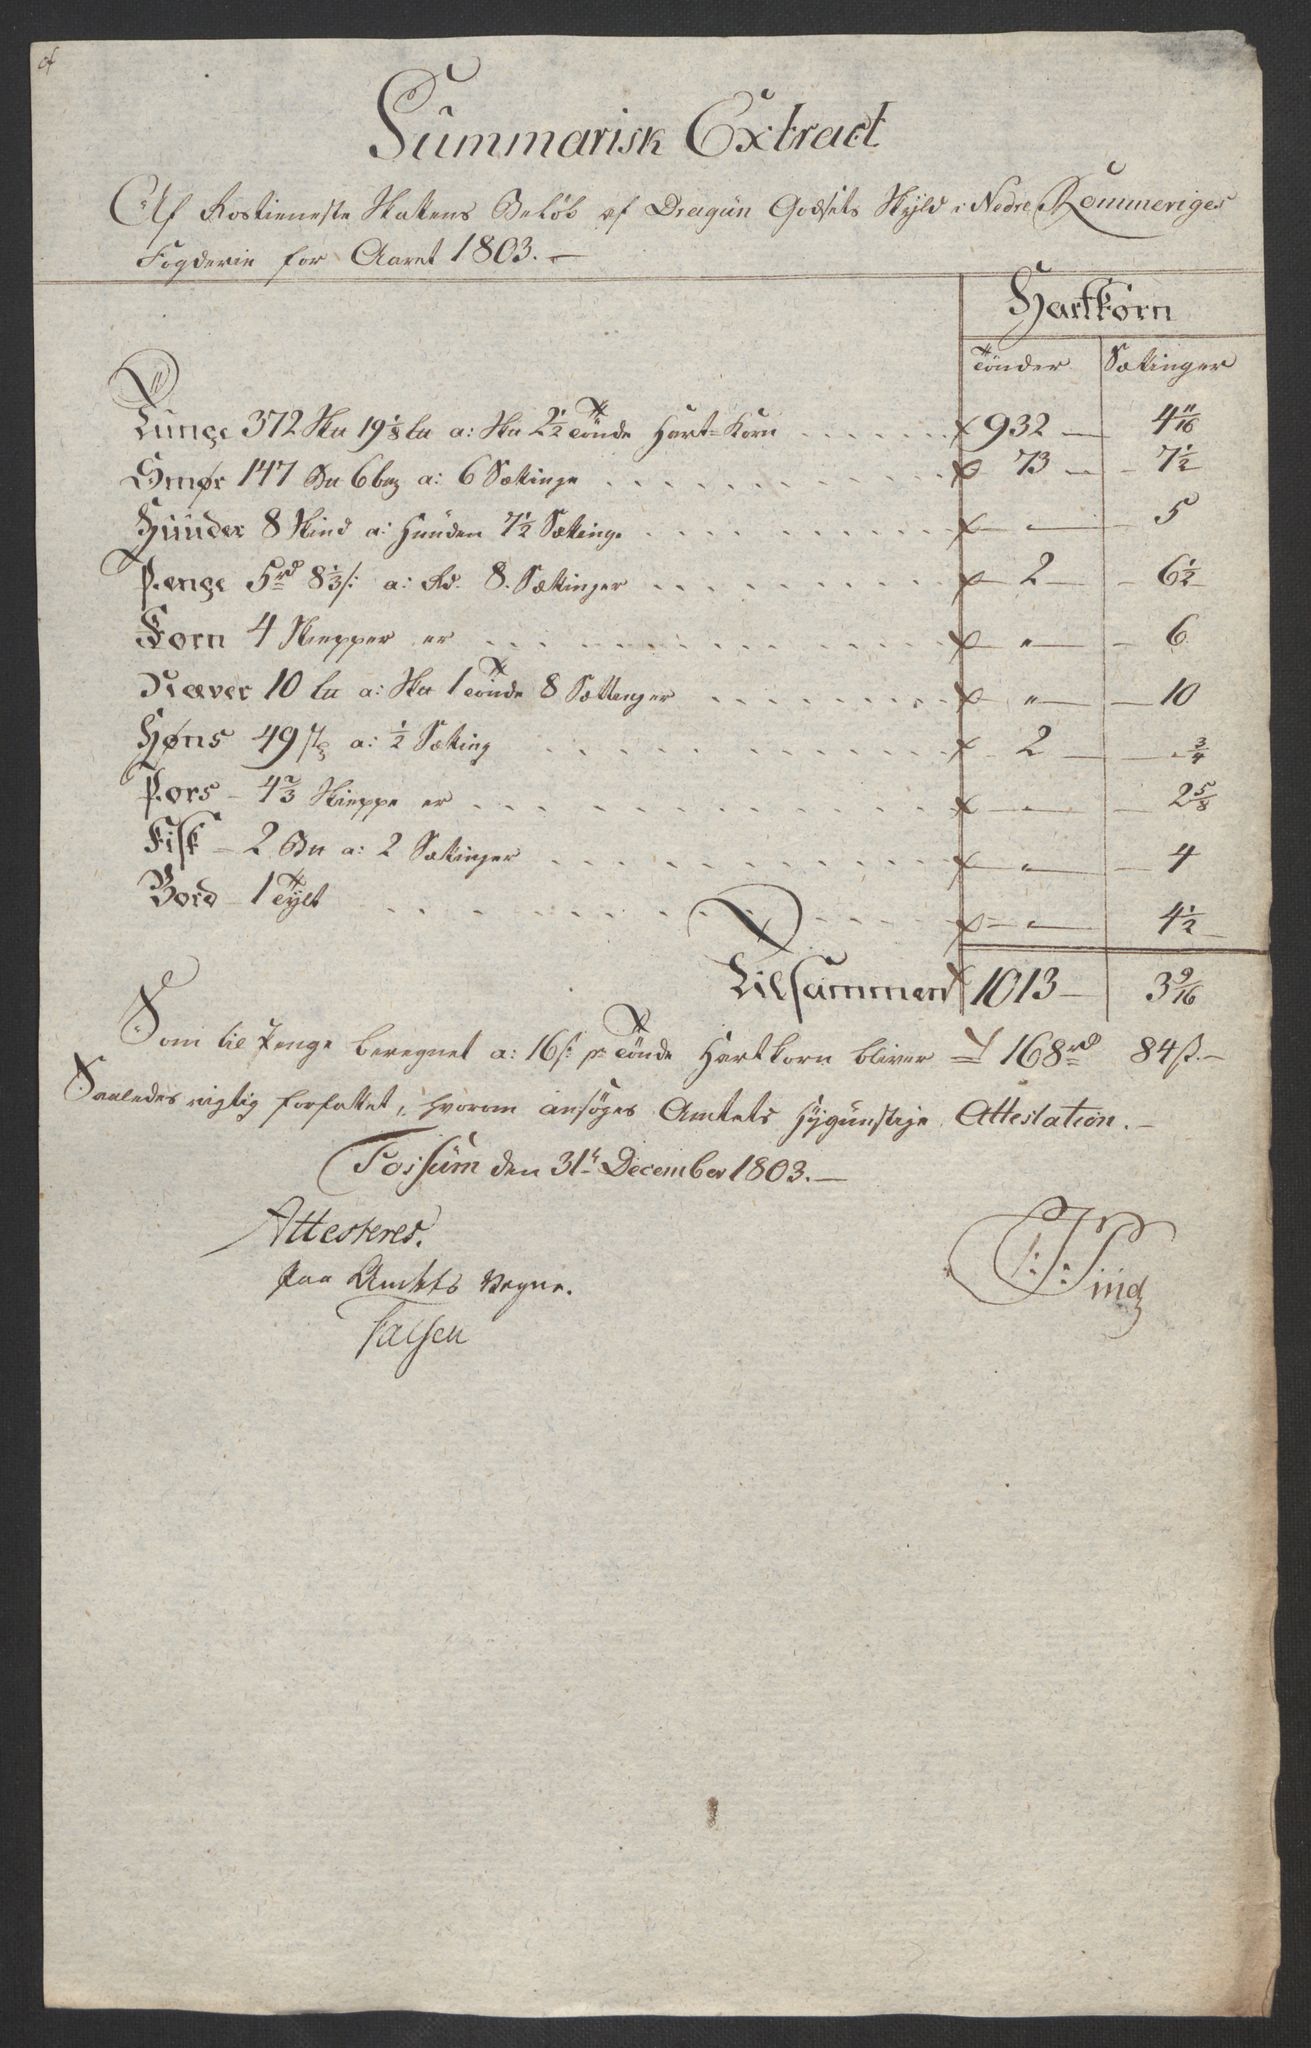 Summarisk Extract
Af Rostieneste Skattens Beløb af Dragun Godsets Skyld i Nedre Rommeriges
Fogderie for Aaret 1803. —
Hartkorn
Tønder Sættinger
Tunge 372 Sku 19 1/8 Lu a: Sku 2 1/2 Tønde Hart-Korn 932 — 4 11/16
Smør 147 Bu 6 bog a: 6 Sættinge 73 — 7 1/2
Huuder 8 Skind a: Huuden 7 1/2 Sætting " — 5
Penge 5 rd 8 1/3 s: a: Rd: 8. Sættinger 2 — 6 1/2
Korn 4 Skiepper er " — 6
Næver 10 Lu a: Sku 1 Tønde 8 Sættinger " — 10
Høns 49 stk a: 1/2 Sætting 2 — 3/4
Pors — 4 2/3 Skieppe er " — 2 5/8
Fisk — 2 Bu a: 2 Sættinger " — 4
Bord — 1 Tylt " — 4 1/2
Tilsammen 1013 — 3 9/16
Som til Penge beregnet a: 16 s: pr Tønde Hartkorn bliver 168 rd 84 s. —
Saaledes rigtig forfattet, hvorom ansøges Amtets Høygunstige Attestation. —
Fossum den 31te December 1803. —
Attesteres.
Paa Amtets Vegne.
Falsen